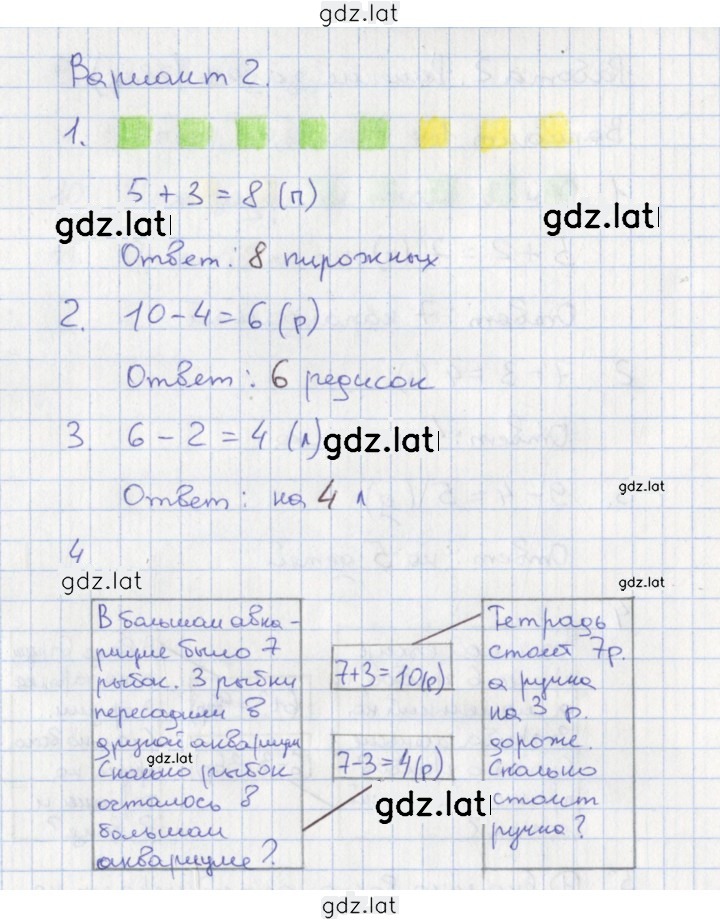 gdz.lat
Вариант 2.
1.
5 + 3 = 8 (п)
gdz.lat
gdz.lat
Ответ: 8 пирожных
2. 10 - 4 = 6 (р)
Ответ: 6 редисок
3 6 - 2 = 4 (л)
gdz.lat
Ответ: на 4 л
gdz.lat
4
gdz.lat
gdz.lat
В большом аква-
риуме было 7
рыбок. 3 рыбки
пересадили в
другой аквариум
gdz.lat
Сколько рыбок
осталось в
большом
аквариуме?
7+3=10(р)
7-3=4(р)
gdz.lat
Тетрадь
стоит 7р.
а ручка
на 3 р.
дороже.
Сколько
стоит
ручка?
gdz.lat